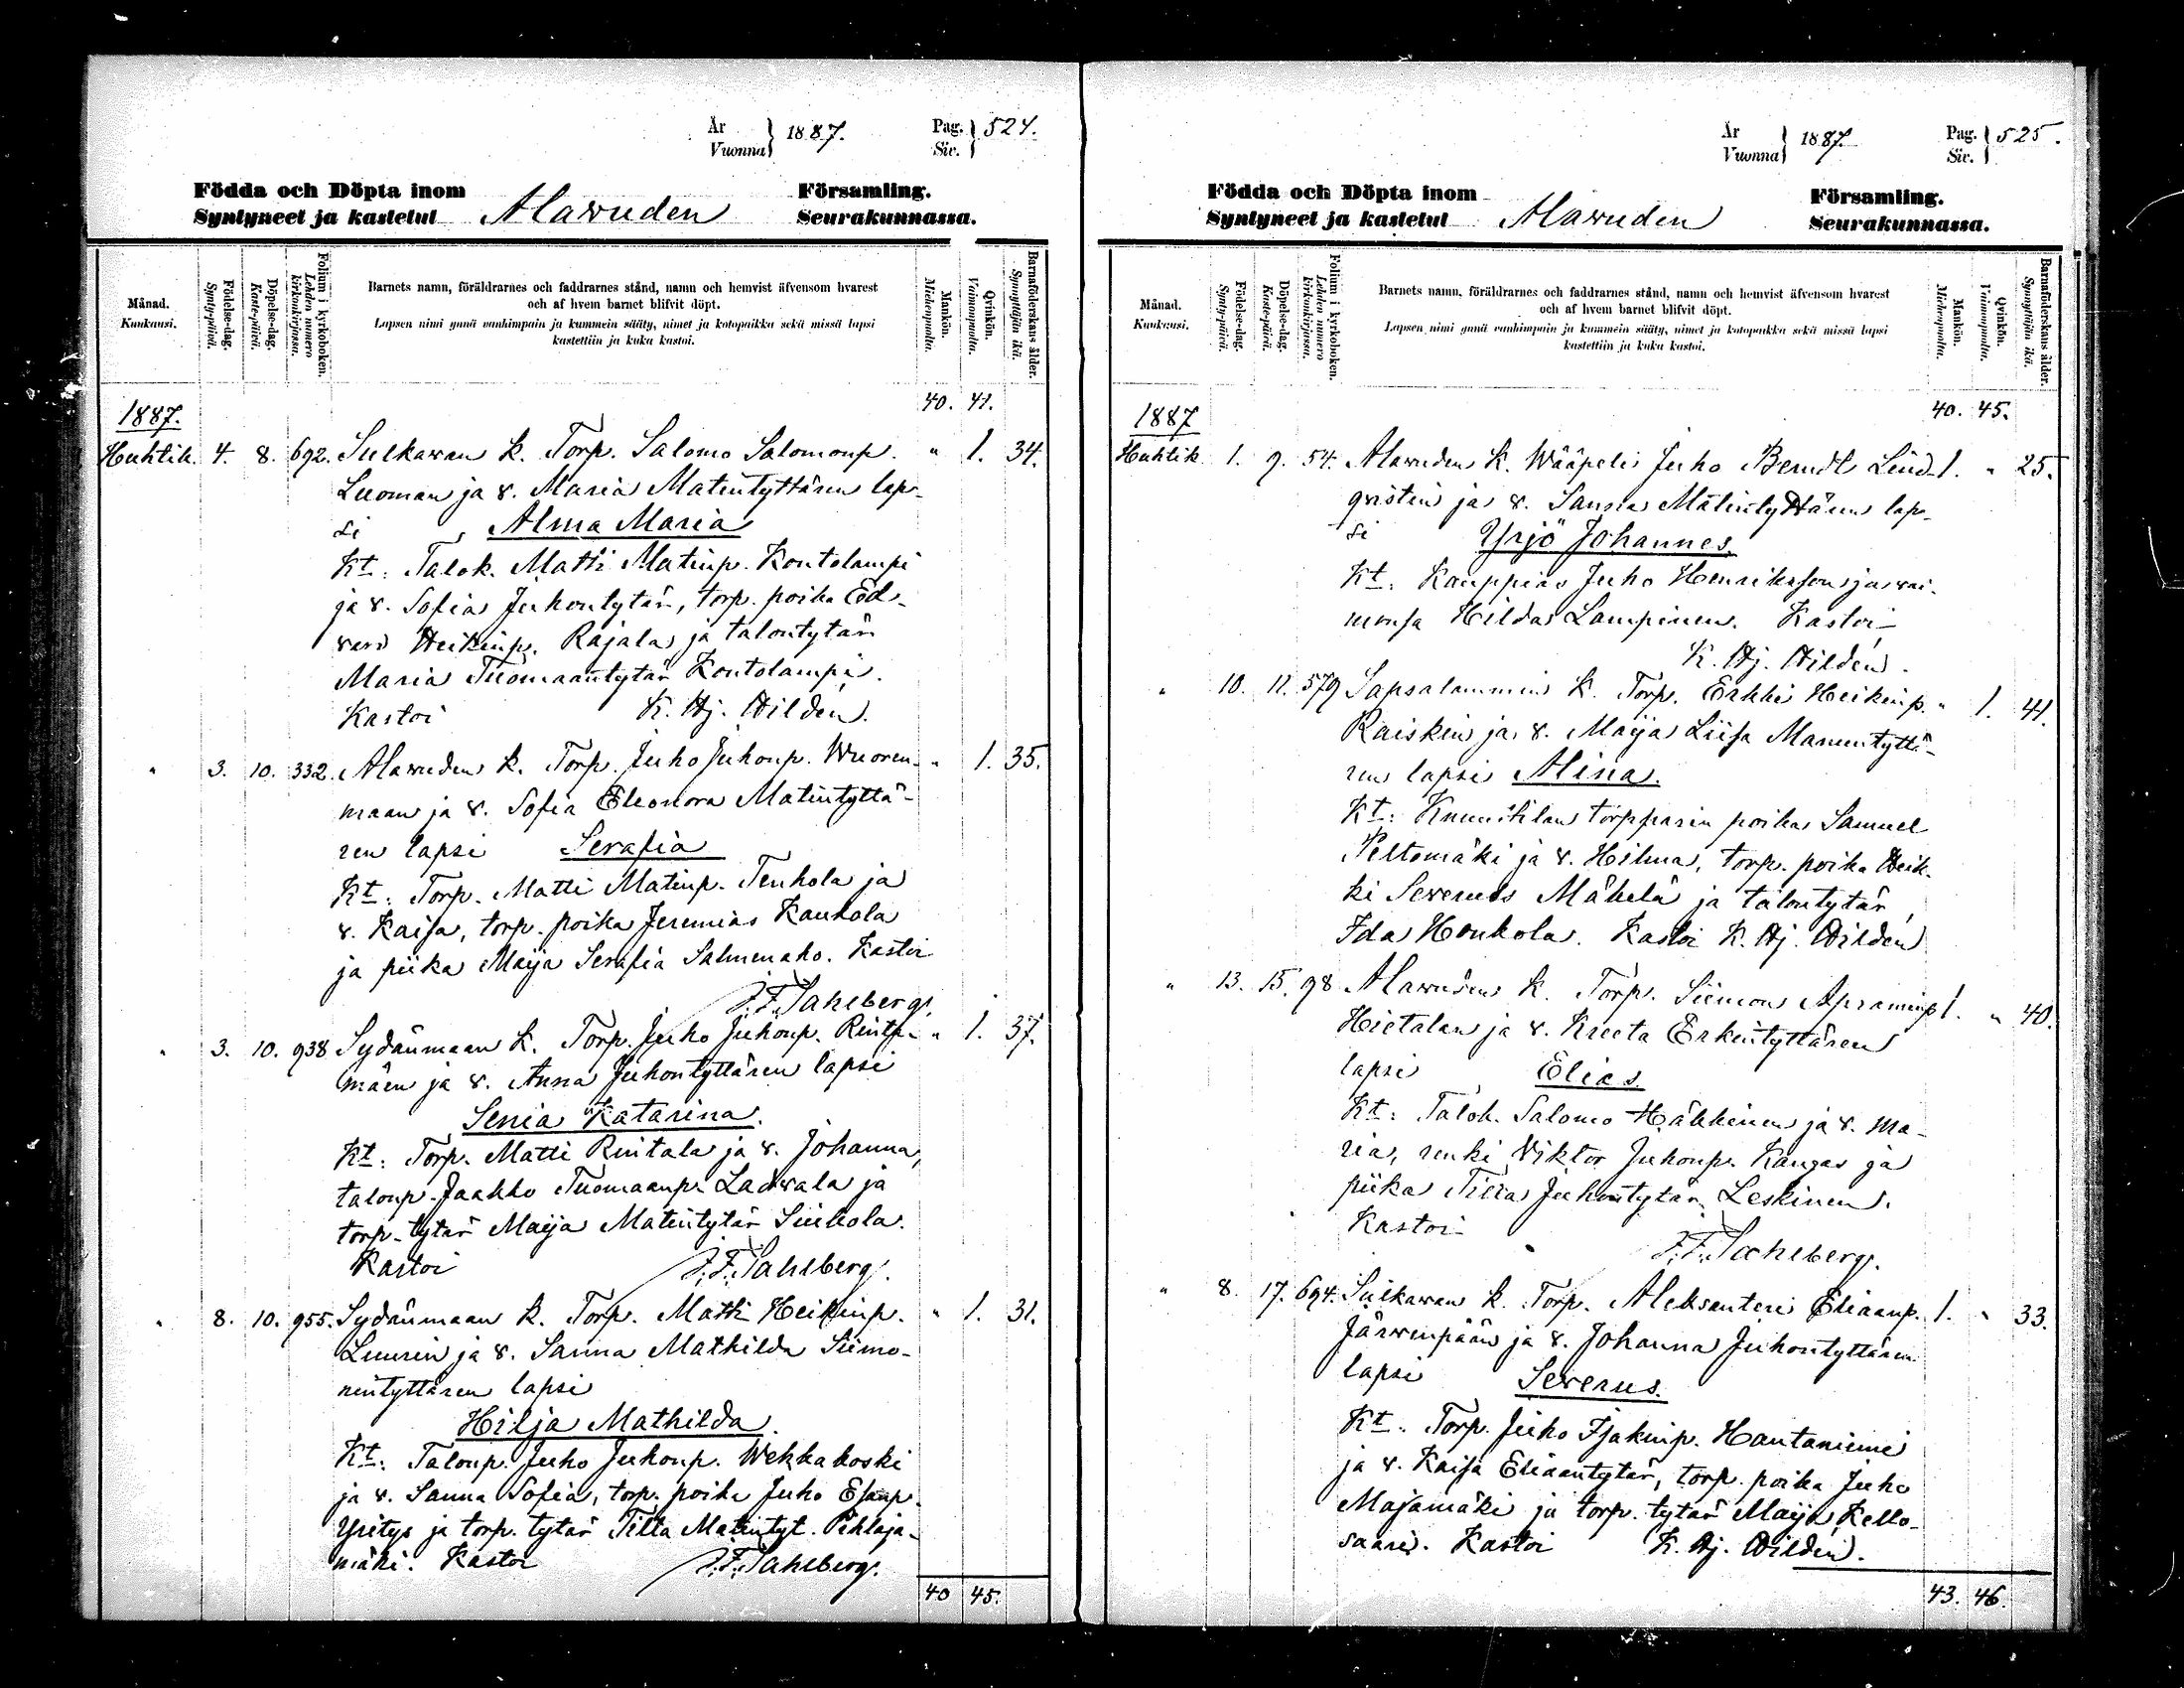 År
Vuonna } 1887.
Pag.
Siv. } 524.
Födda och Döpta inom
Syntyneet ja kastetut Alawuden
Församling.
Seurakunnassa.
Månad.
Kuukausi.
Födelse-dag.
Synty-päivä.
Döpelse-dag.
Kaste-päivä.
Folium i kyrkoboken.
Lehden numero
kirkonkirjassa.
Barnets namn, föräldrarnes och faddrarnes stånd, namn och hemvist äfvensom hvarest
och af hvem barnet blifvit döpt.
Lapsen nimi ynnä vanhimpain ja kummein sääty, nimet ja kotopaikka sekä missä lapsi
kastettiin ja kuka kastoi.
Mankön.
Miehenpuolta.
Qvinkön.
Vaimonpuolta.
Barnaföderskans ålder.
Synnyttäjän ikä.
40. 41.
1887.
Huhtik. 4. 8. 692. Sulkawan k. Torp. Salomo Salomonp. " 1. 34.
Luoman ja v. Maria Matintyttären lap-
si Alma Maria
Kt: Talok. Matti Matinp. Kontolampi
ja v. Sofia Juhontytär, torp. poika Ed-
vard Heikinp. Rajala ja talontytär
Maria Tuomaantytär Kontolampi.
Kastoi K. Hj. Hildén.
" 3. 10. 332. Alawuden k. Torp. Juho Juhonp. Wuoren- " 1. 35.
maan ja v. Sofia Eleonora Matintyttä-
ren lapsi Serafia
Kt: Torp. Matti Matinp. Tenhola ja
v. Kaisa, torp. poika Jeremias Kauhola
ja piika Maija Serafia Salmenaho. Kastoi
J. F. Sahlberg.
" 3. 10. 938 Sydänmaan k. Torp. Juho Juhonp. " 1. 37.
mäen ja v. Anna Juhontyttären lapsi
Senia Katarina.
Kt: Torp. Matti Rintala ja v. Johanna,
talonp. Jaakko Tuomaanp. Ladwala ja
torp. tytär Maija Matintytär
Kastoi J. F. Sahlberg.
" 8. 10. 955. Sydänmaan k. Torp. Matti Heikinp. " 1. 31.
Luurin ja v. Sanna Mathilda Siimo-
nintyttären lapsi
Hilja Mathilda.
Kt: Talonp. Juho Juhonp. Wekkakoski
ja v. Sanna Sofia, torp. poika Juho Esanp.
Yritys ja torp. tytär Tilta Matintyt. Pihlaja-
mäki. Kastoi J. F. Sahlberg.
40 45.
År
Vuonna } 1887.
Pag.
Siv. } 525.
Födda och Döpta inom
Syntyneet ja kastetut Alawuden
Församling.
Seurakunnassa.
Månad.
Kuukausi.
Födelse-dag.
Synty-päivä.
Döpelse-dag.
Kaste-päivä.
Folium i kyrkoboken.
Lehden numero
kirkonkirjassa.
Barnets namn, föräldrarnes och faddrarnes stånd, namn och hemvist äfvensom hvarest
och af hvem barnet blifvit döpt.
Lapsen nimi ynnä vanhimpain ja kummein sääty, nimet ja kotopaikka sekä missä lapsi
kastettiin ja kuka kastoi.
Mankön.
Miehenpuolta.
Qvinkön.
Vaimonpuolta.
Barnaföderskans ålder.
Synnyttäjän ikä.
40. 45.
1887
Huhtik. 1. 9. 54. Alawuden k. Wääpeli Juho Berndt Lind- 1. " 25.
qvistin ja v. Sanna Matintyttären lap-
si Yrjö Johannes.
Kt: Kauppias Juho Henrikson ja vai-
monsa Hilda Lampinen. Kastoi
K. Hj. Hildén.
" 10. 11. 579 Sapsalammin k. Torp. Erkki Heikinp. " 1. 41.
Raiskin ja v. Maija Liisa Manuntyttä-
ren lapsi Alina.
Kt: Knuutilan torpparin poika Samuel
Peltomäki ja v. Hilma, torp. poika Heik-
ki Severus Mäkelä ja talontytär
Ida Honkola. Kastoi K. Hj. Hildén
" 13. 15. 98 Alawuden k. Torp. Siimon Apraminp 1. " 40.
Hietalan ja v. Kreeta Erkintyttären
lapsi Elias.
Kt: Talok. Salomo Häkkinen ja v. Ma-
ria, renki Viktor Juhonp. Kangas ja
piika Tilta Juhontytär Leskinen.
Kastoi
J. F. Sahlberg.
" 8. 17. 694. Sulkawan k. Torp. Aleksanteri Eliaanp. 1. " 33.
Järwenpään ja v. Johanna Juhontyttären
lapsi Severus.
Kt: Torp. Juho Isakinp. Hautaniemi
ja v. Kaisa Eliaantytär, torp. poika Juho
Majamäki ja torp. tytär Maija Kello-
saari. Kastoi K. Hj. Hildén.
43. 46.